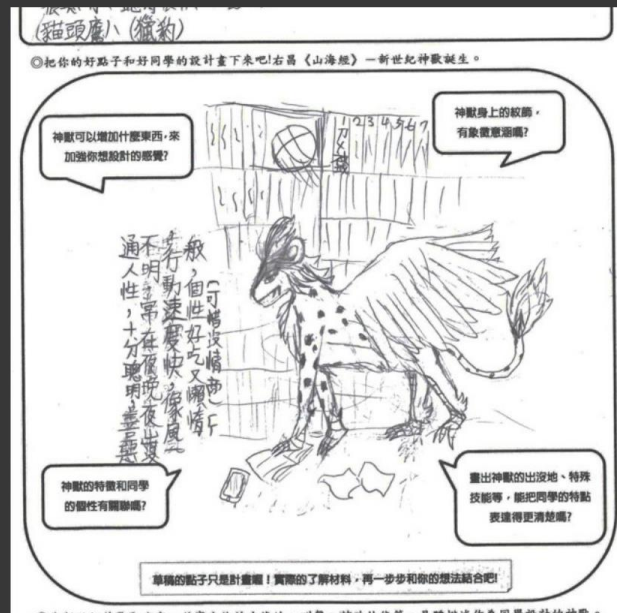 (貓頭鷹)、(獵豹)
◎把你的好點子和好同學的設計畫下來吧!右昌《山海經》－新世紀神獸誕生。
神獸可以增加什麼東西,來
加強你想設計的感覺?
神獸身上的紋飾,
有象徵意涵嗎?
1 2 3 4 5 6 7
(可惜沒情商)
敏,個性好吃又懶惰
行動速度快,像風
不明,常在夜晚
通人性,十分聰明,
神獸的特徵和同學
的個性有關聯嗎?
畫出神獸的出沒地、特殊
技能等,能把同學的特點
表達得更清楚嗎?
草稿的點子只是計畫喔!實際的了解材料,再一步步和你的想法結合吧!